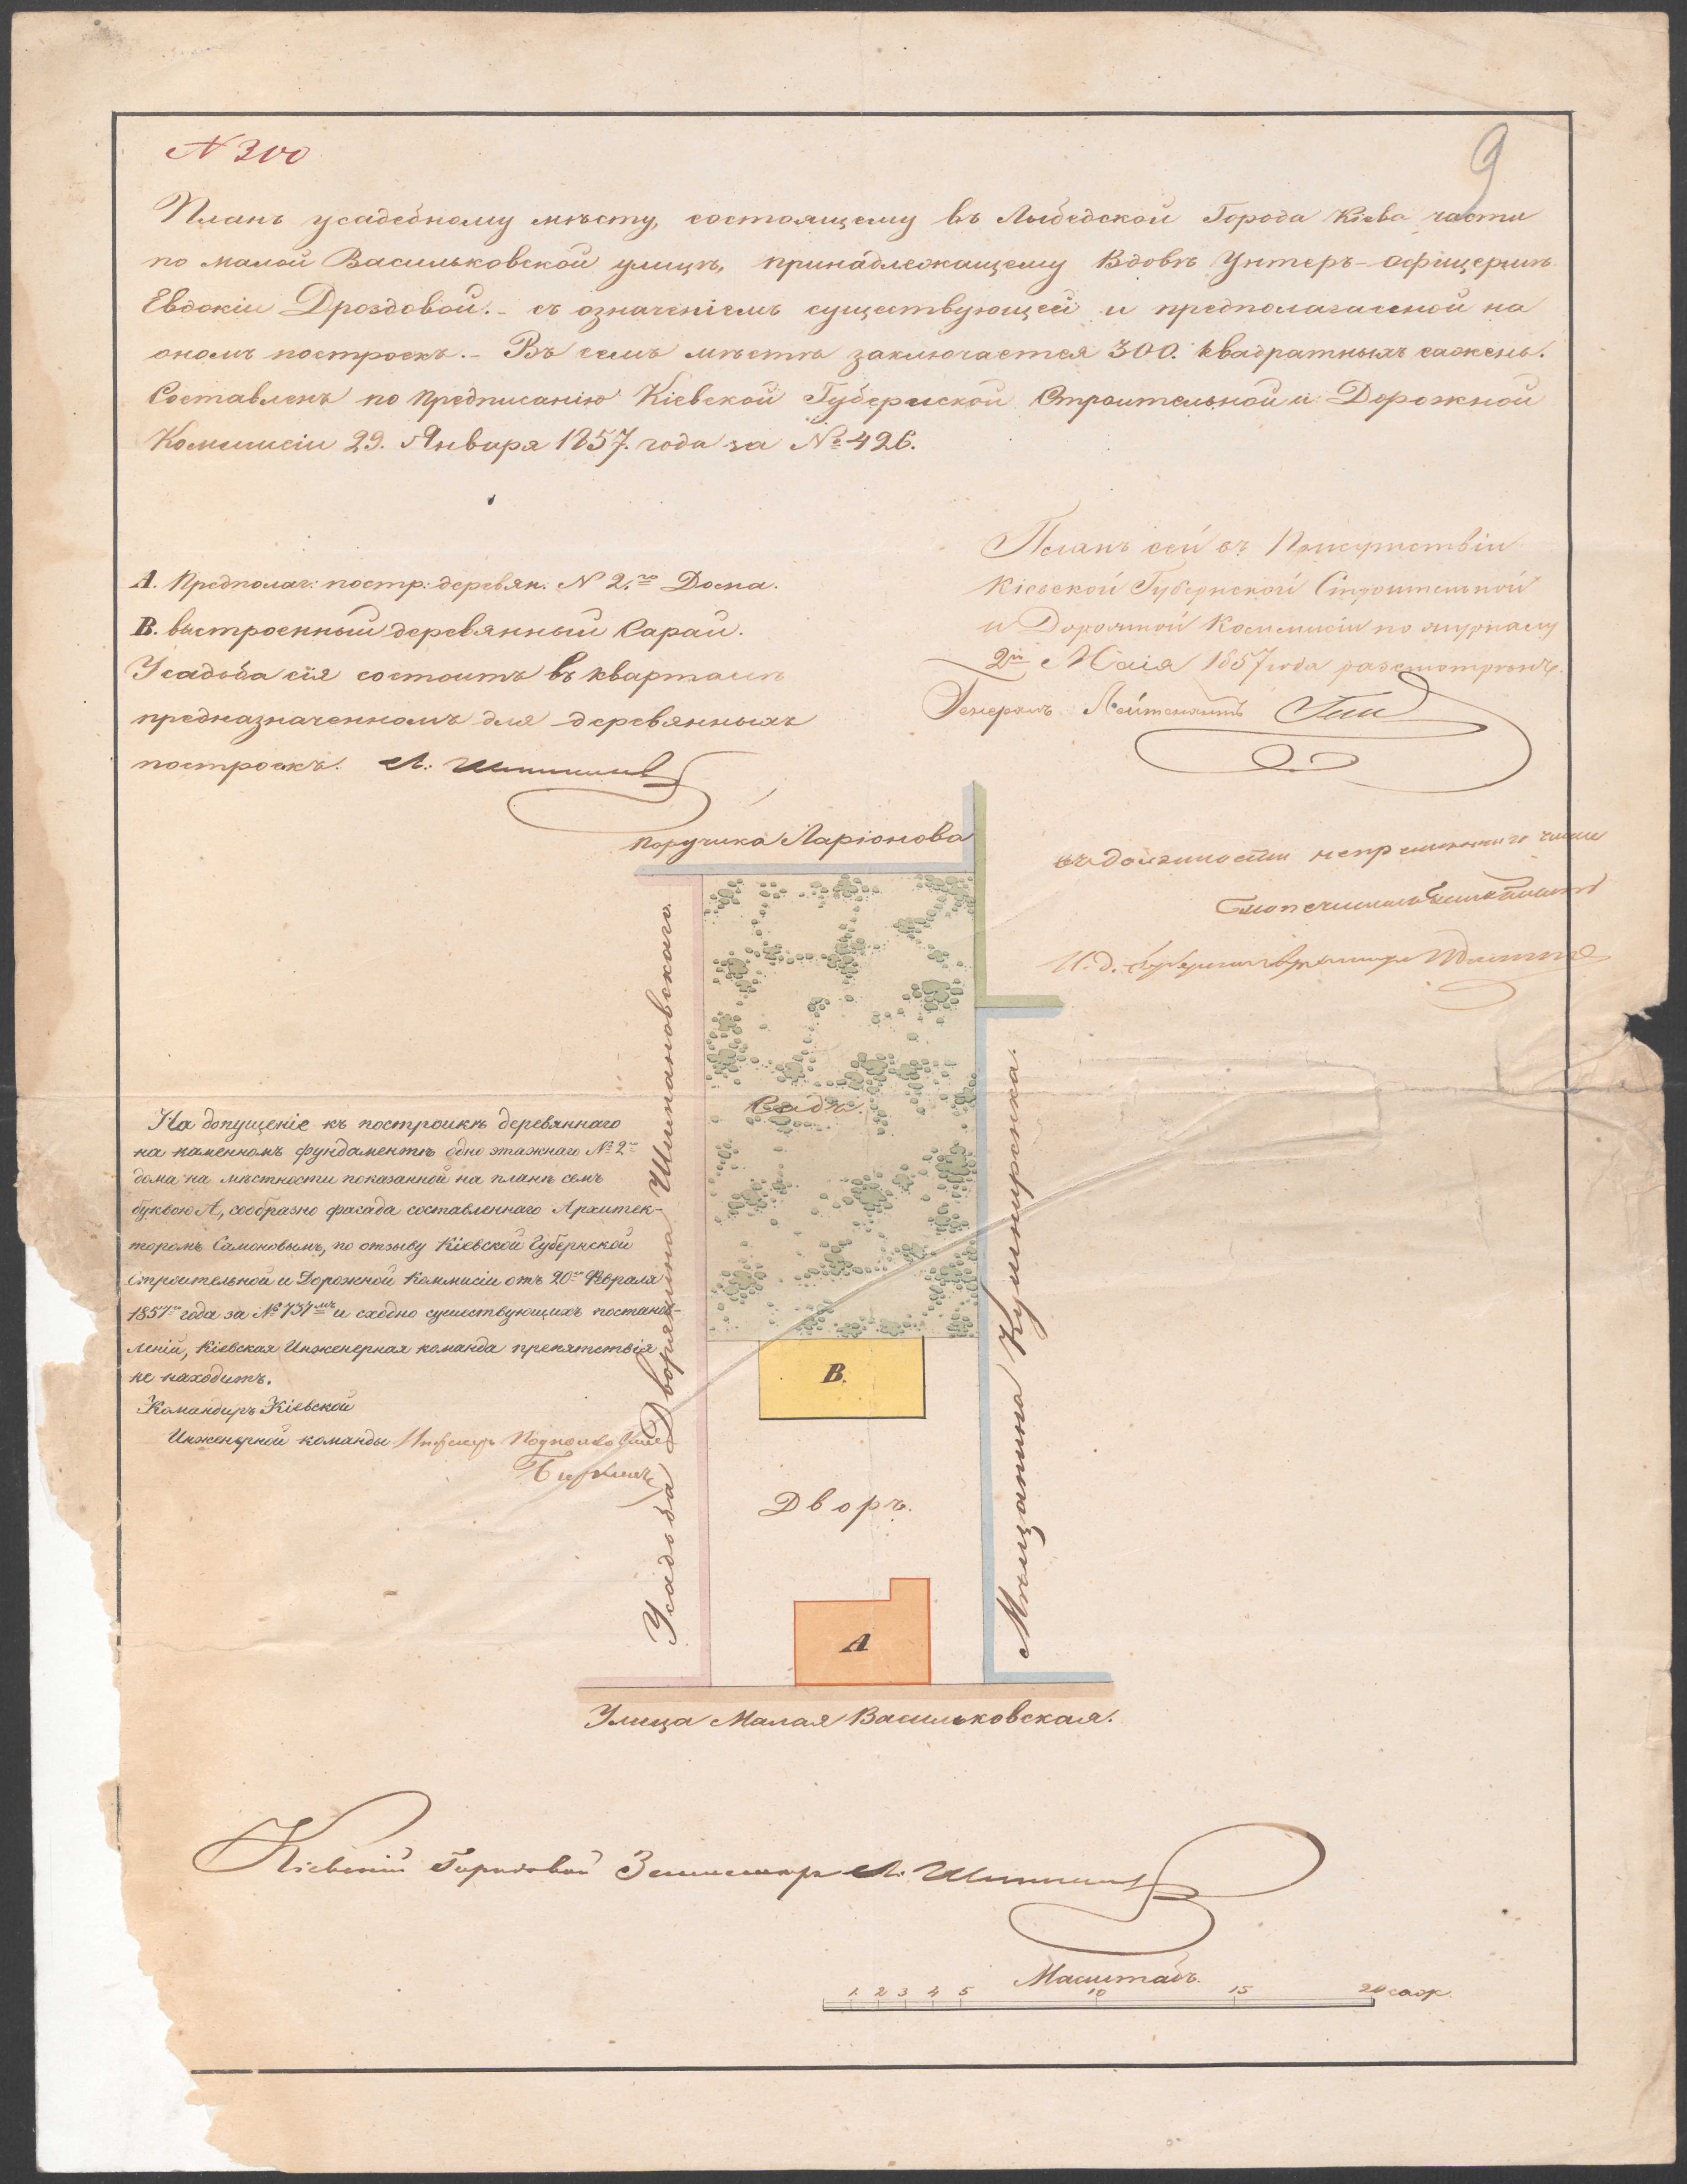 N 300
9
Планъ усадебному мѣсту, состоящему въ Лыбедской Города Кіева части
по малой Васильковской улицѣ, принадлежащему Вдовѣ Унтеръ-офицершѣ
Евдокіи Дроздовой.- съ означеніемъ существующей и предполагаемой на
ономъ построекъ.- Въ семъ мѣстѣ заключается 300. квадратныхъ сажень.
Составленъ по Предписанію Кіевской Губернской Строительной и Дорожной
Коммисіи 29. Января 1857. года за № 426.
А. Предполаг: постр: деревян: N 2.го Дома.
В. выстроенный деревянный Сарай.
Усадьба сія состоитъ въ кварталѣ
предназначенномъ для деревянныхъ
построекъ. Л.
Планъ сей въ Присутствіи
Кіевской Губернской Строительной
и Дорожной Коммисіи по журналу
2й Маія 1857 года разсмотрѣнъ.
Генералъ Лейтенантъ
въ должности
И. д.
поручика Ларіонова
Усадьба Дворянина Шимановскаго.
Мѣщанина Кушнирюка.
Садъ.
На допущеніе къ постройкѣ деревяннаго
на каменномъ фундаментѣ одно этажнаго № 2го
дома на мѣстности показанной на планѣ семъ
буквою А, сообразно фасада составленнаго Архитек-
торомъ Самоновымъ, по отзыву Кіевской Губернской
Строительной и Дорожной Коммисіи отъ 20го Февраля
1857го года за № 737мъ и сходно существующихъ постанов-
леній, Кіевская Инженерная команда препятствія
не находитъ.
Командиръ Кіевской
Инженерной команды Инженеръ Подполковникъ
В.
Дворъ.
А
Улица Малая Васильковская.
Кіевскій Городовой Землемѣръ Л.
Масштабъ.
1 2 3 4 5 10 15 20 саж.